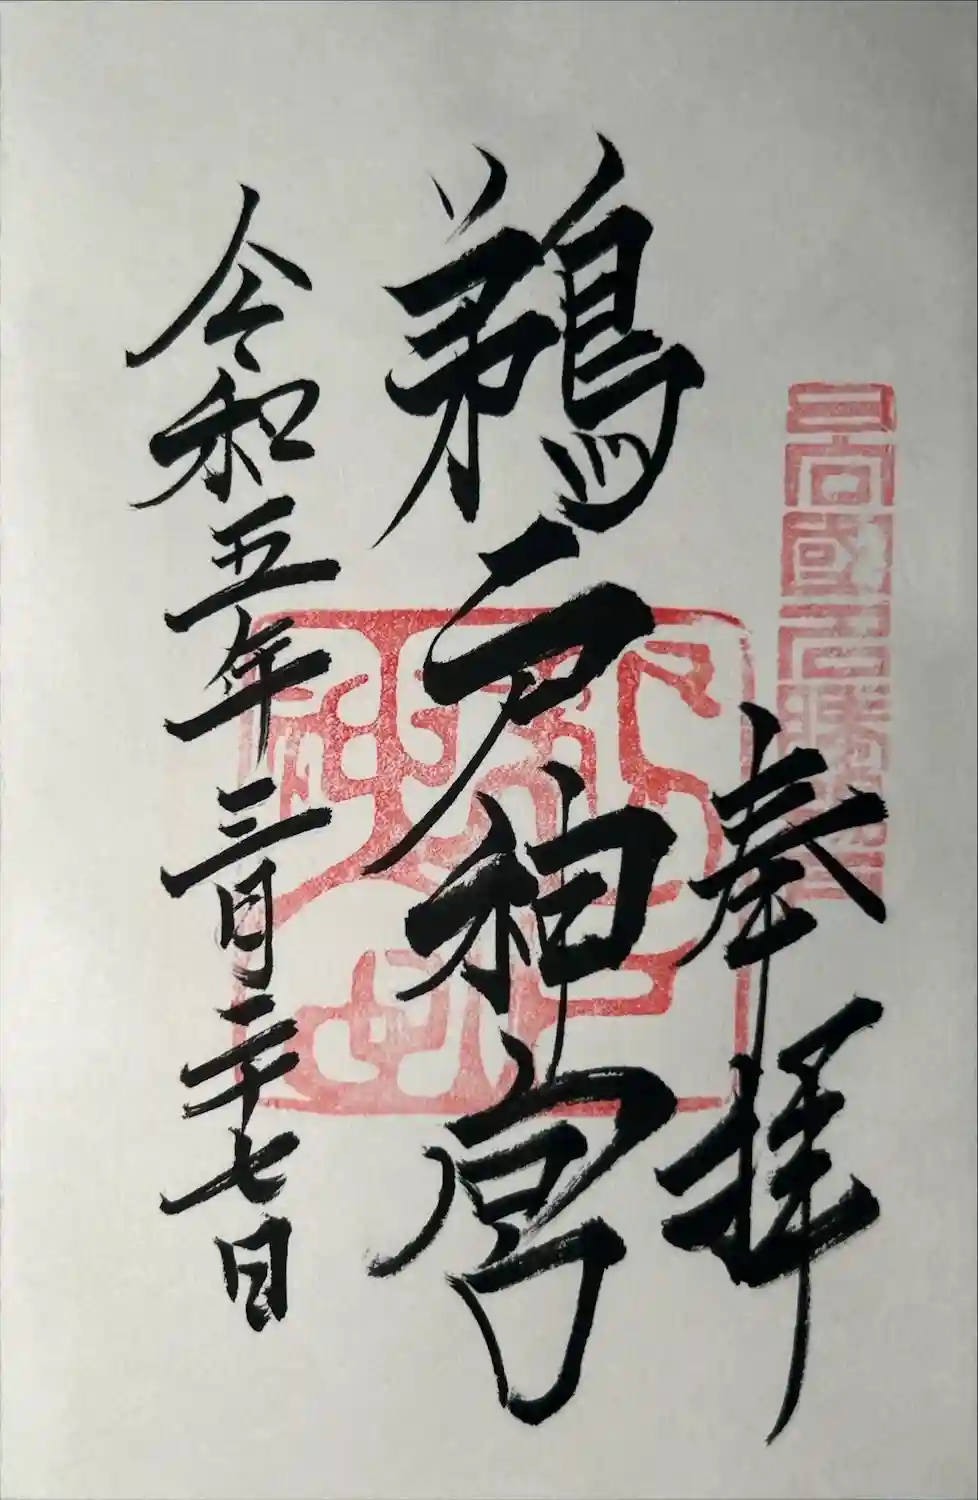 日向國
奉拝
鵜戸神宮
令和五年三月二十七日